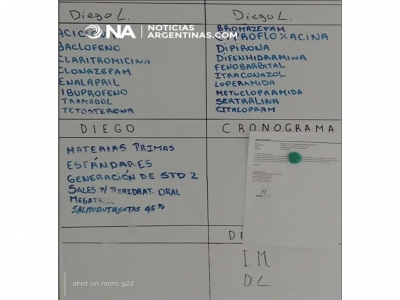 Diego L.
Diego L.
NA NOTICIAS
ARGENTINAS.COM
BACLOFENO
CLARITROMICINA
CLONAZEPAM
ENALAPRIL
IBUPROFENO
TRAMADOL
TETOSTERONA
BROMAZEPAM
CIPROFLOXACINA
DIPIRONA
DIFENHIDRAMINA
FENOBARBITAL
ITRACONAZOL
LOPERAMIDA
METOCLOPRAMIDA
SERTRALINA
CITALOPRAM
DIEGO
CRONOGRAMA
MATERIAS PRIMAS
ESTÁNDARES
GENERACIÓN DE STD 2
SALES P/ REHIDRAT. ORAL
I.M.
D.L
shot on moto g22